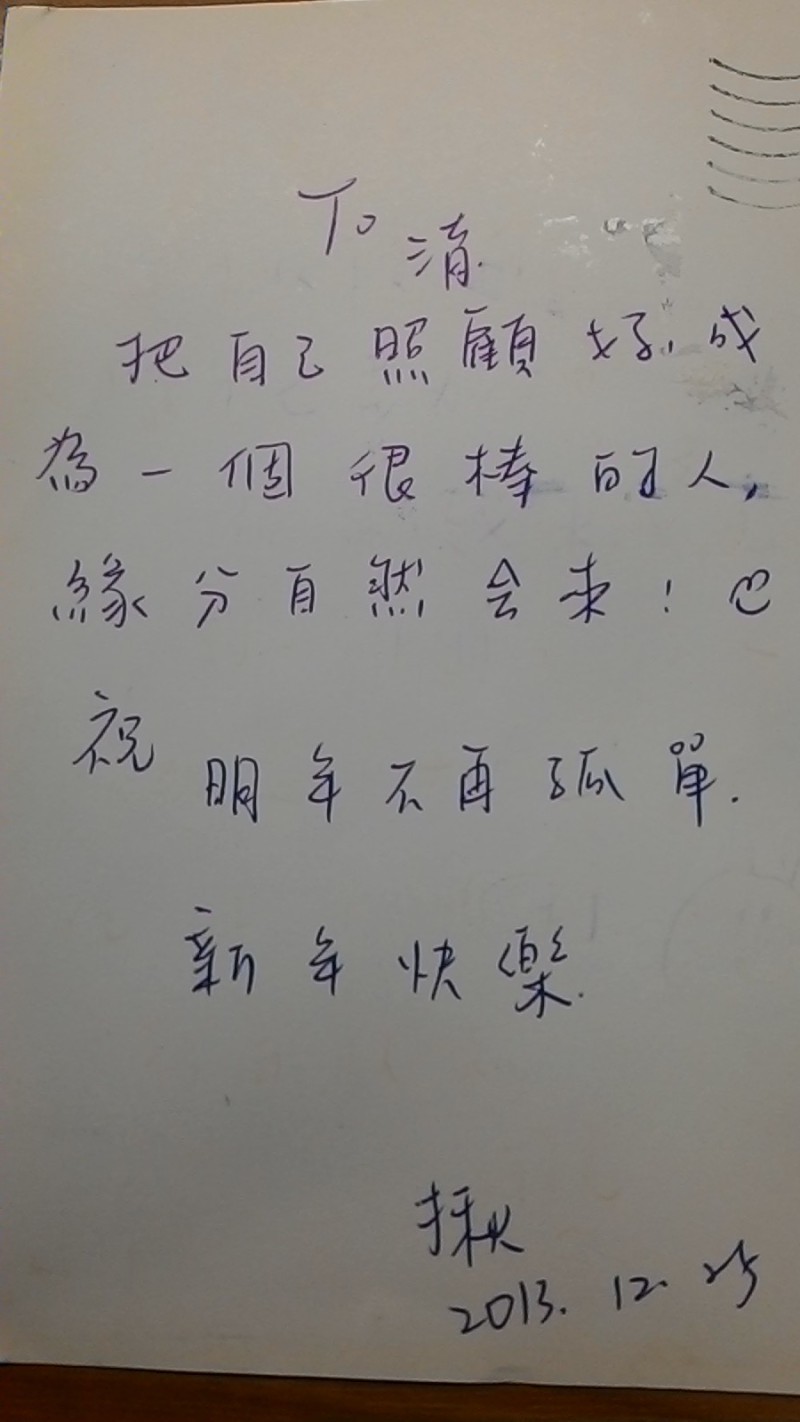 To 淯
把自己照顧好,成
為一個很棒的人,
緣分自然会來!
祝
明年不再孤單.
新年快樂.
揪
2013.12.25